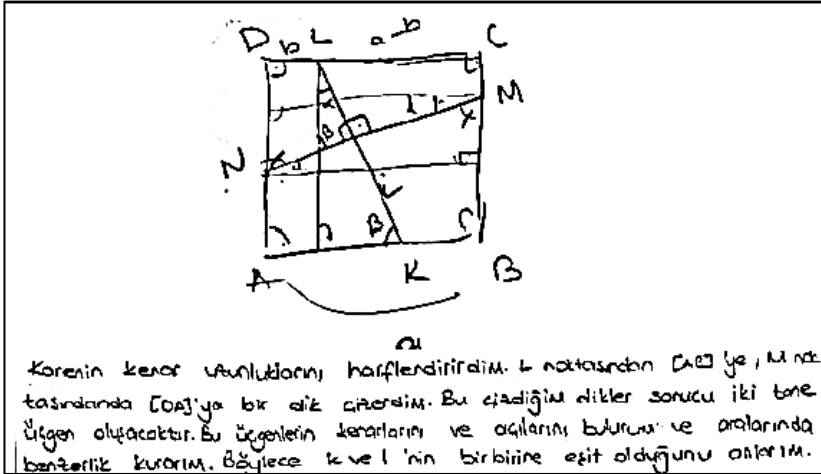 D b L a-b C
M
α
β
x
N
β
A K B
a
Karenin kenar uzunluklarını harflendirirdim. L noktasından [AB]'ye, M nok
tasındanda [DA]'ya bir dik çizerdim. Bu çizdiğim dikler sonucu iki tane
üçgen oluşacaktır. Bu üçgenlerin kenarlarını ve açılarını bulurum ve aralarında
benzerlik kurarım. Böylece k ve l 'nin birbirine eşit olduğunu anlarım.